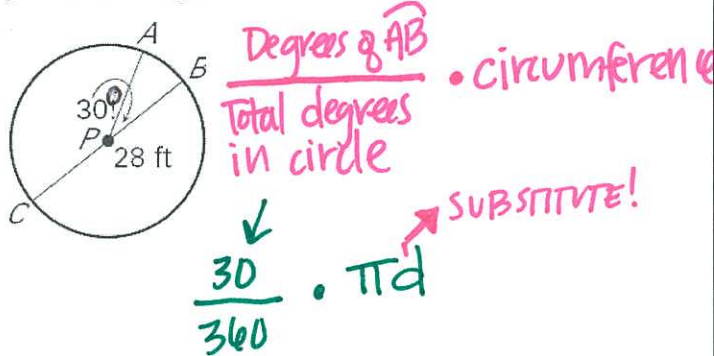 A
B
30°
P
28 ft
C
Degrees of AB
Total degrees
in circle
• circumference
SUBSTITUTE!
30
360
• πd